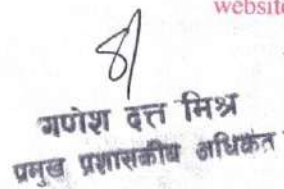 website
गणेश दत्त मिश्र
प्रमुख प्रशासकीय अधिकृत